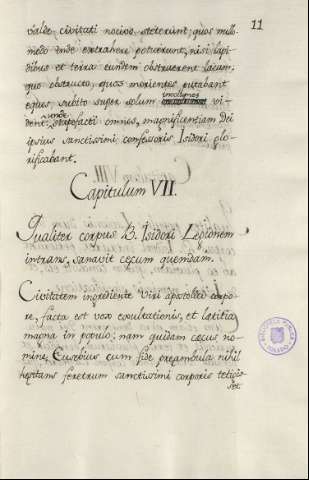 11
valde civitati nocivo steterunt, quos nullo
modo inde extrahere potuerunt, nisi lapi-
dibus et terra eundem obstruerent lacum,
quo obstructo, quos morientes putabant
equos, subito super solum incolumes vi-
dent, unde stupefacti omnes, magnificentiam Dei
ipsius sanctissimi confessoris Isidori glo-
rificabant.
Capitulum VII.
Qualiter corpus B. Isidori Legionem
intrans, sanavit cęcum quendam.
Civitatem ingrediente viri apostolici corpo-
re, facta est vox exultationis, et lætitia
magna in populo; nam quidam cęcus no-
mine Eusebius cum fide preambula nihil
hęsitans feretrum sanctissimi corporis tetigis-
set.